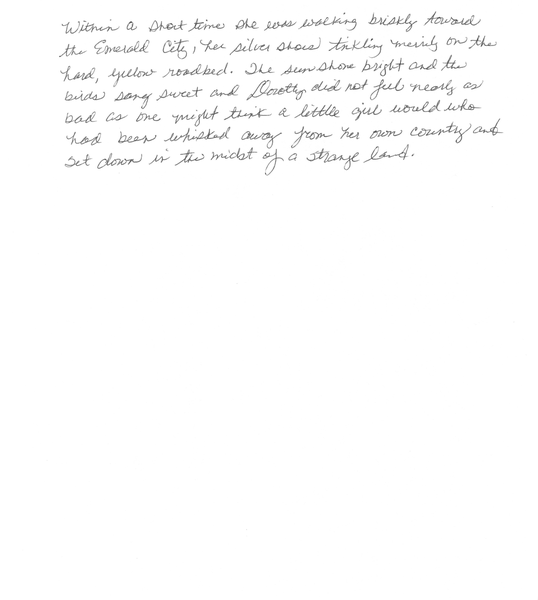 Within a short time she was walking briskly toward
the Emerald City, her silver shoes tinkling merrily on the
hard, yellow roadbed. The sun shone bright and the
birds sang sweet and Dorothy did not feel nearly as
bad as one might think a little girl would who
had been whisked away from her own country and
set down in the midst of a strange land.